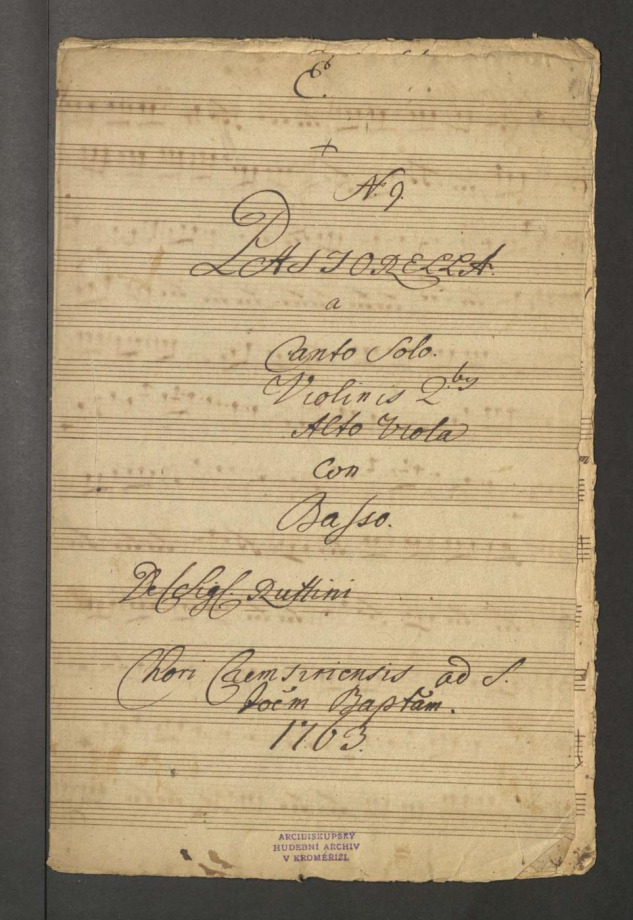 C.
+
N: 9.
PASTORELLA.
a
Canto Solo.
Violinis 2.bus
Alto Viola
Con
Basso.
Del Sigl.
Chori Cremsiriensis ad S.
Joem Baptam.
1763.
ARCIBISKUPSKÝ
HUDEBNÍ ARCHIV
V KROMĚŘÍŽI.